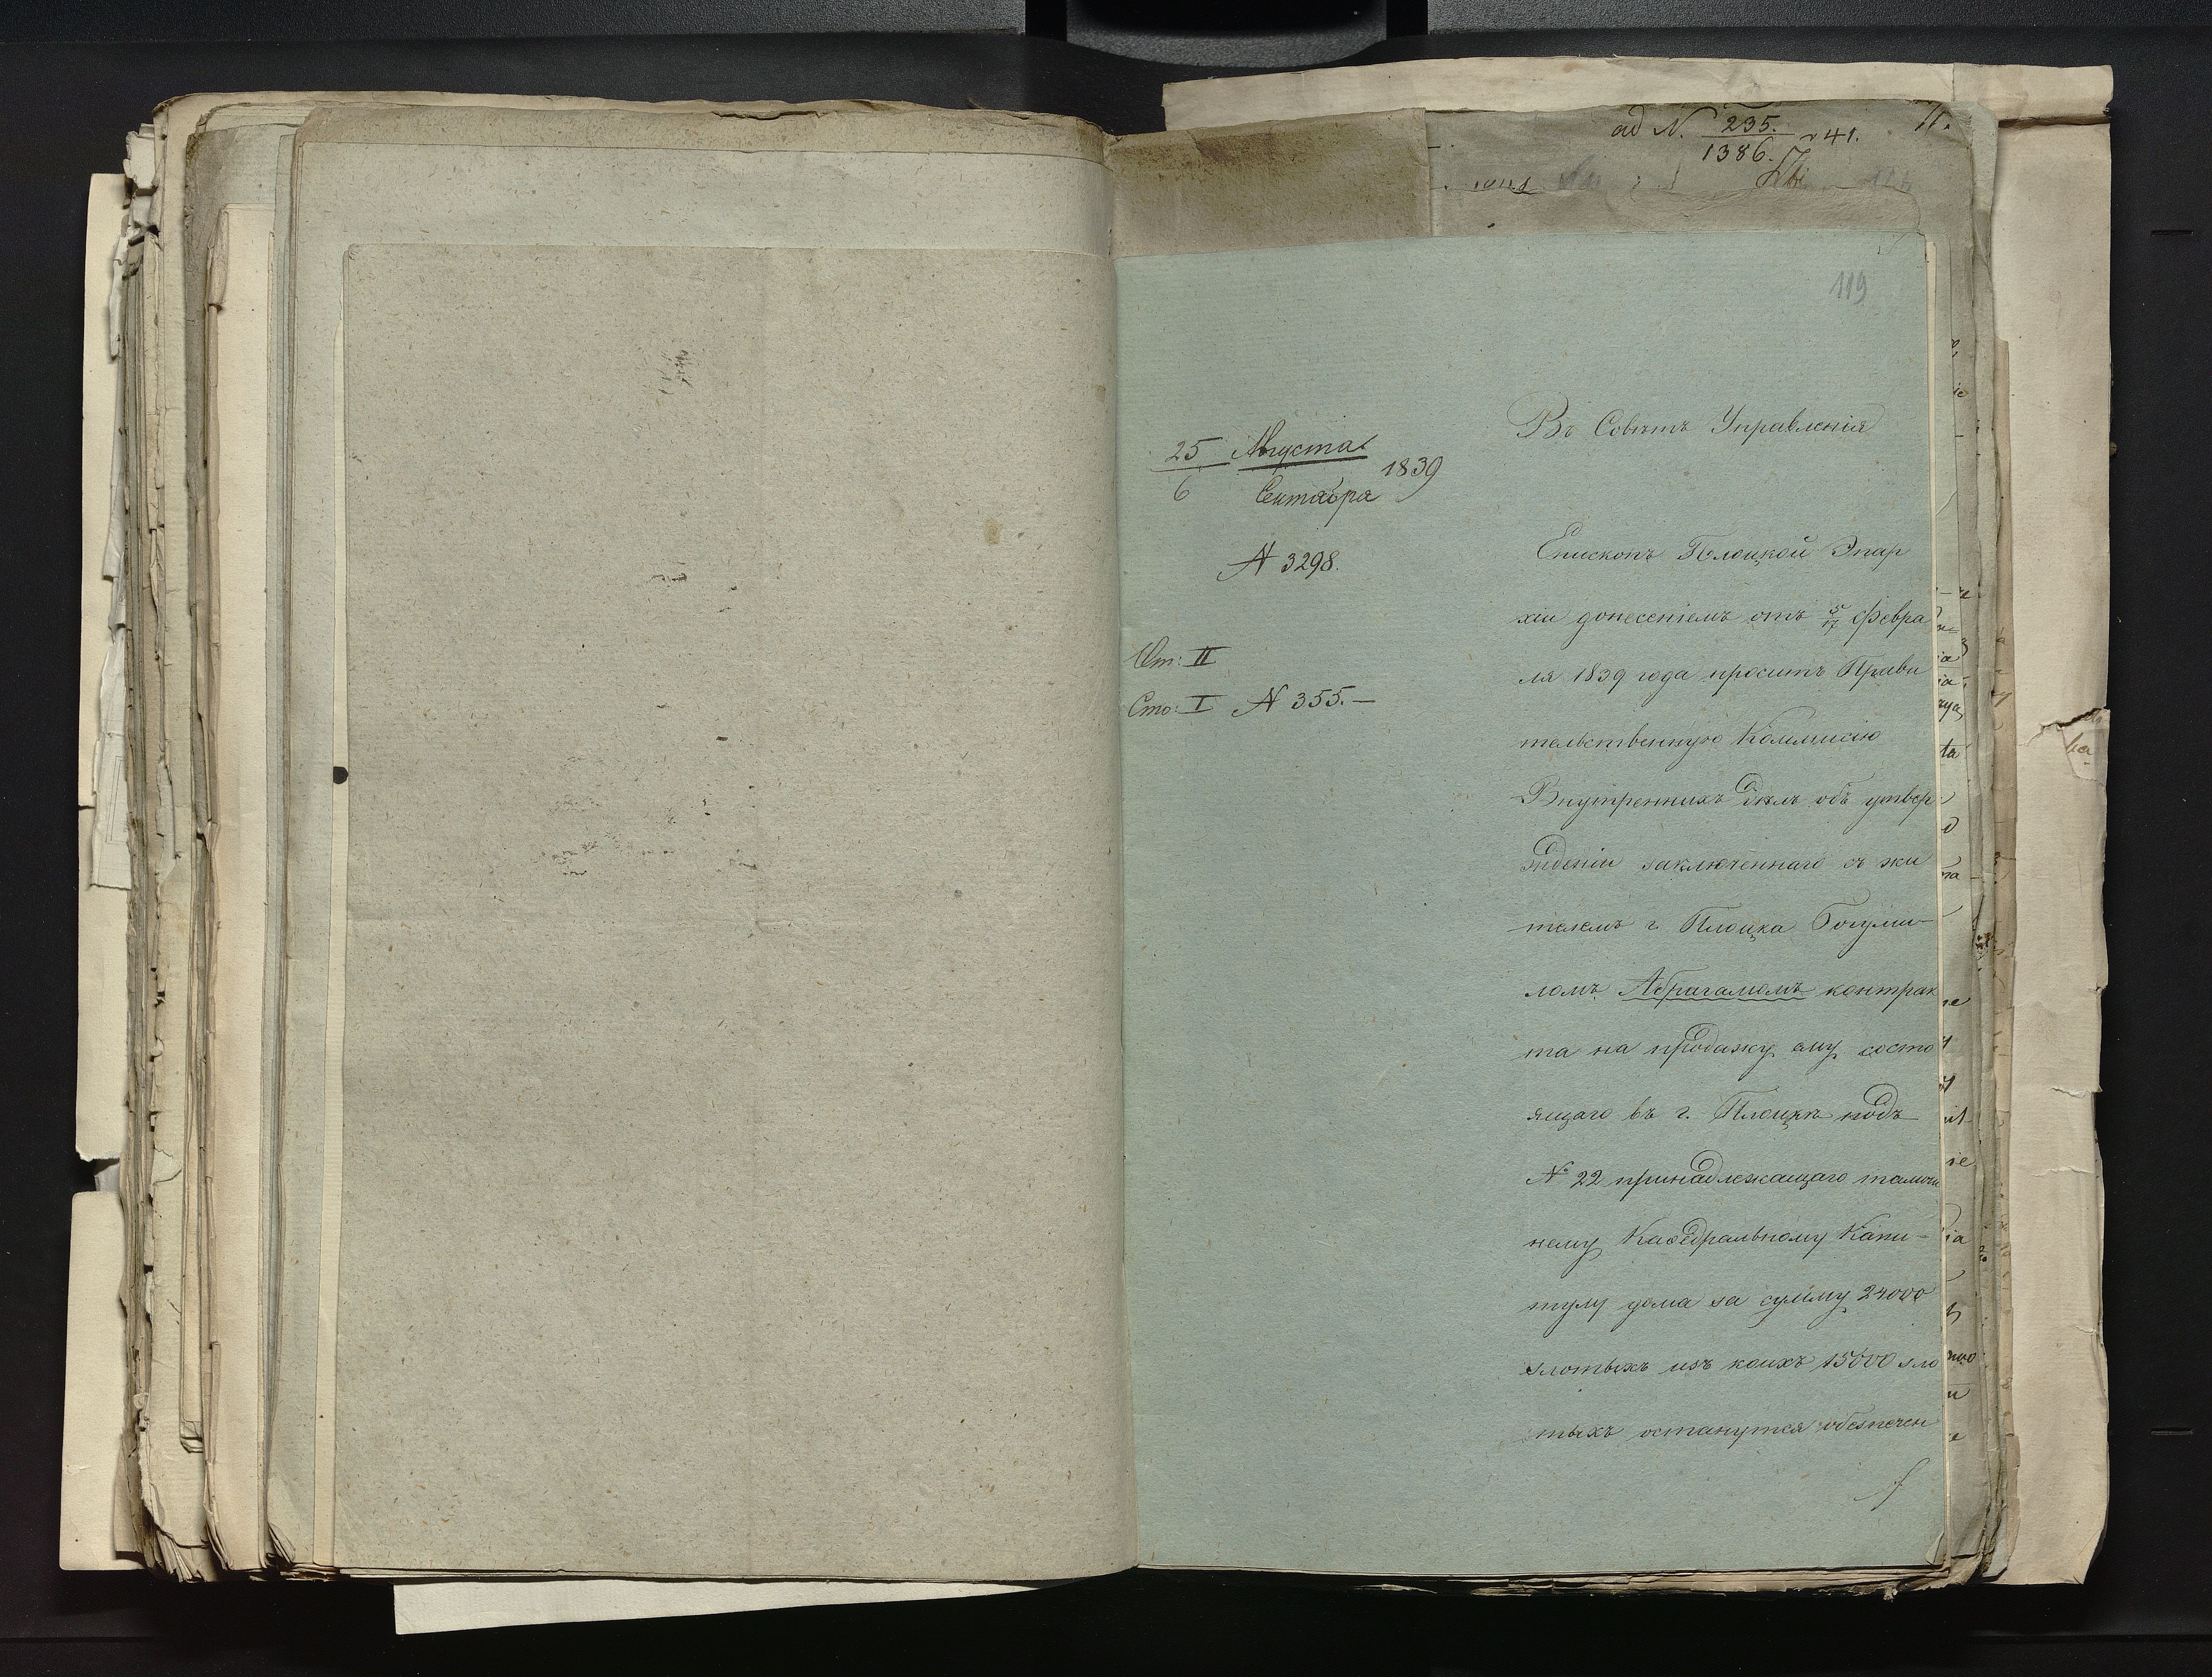 ad N. 235. 41. 11.
1386.
119
Въ Совѣтъ Управленія
25 Августа
1839
6 Сентября
N 3298.
От: II
Сто: I N 355.—
Епископъ Плоцкой Эпар
хіи донесеніемъ отъ 5/17 Февра
ля 1839 года проситъ Прави
тельственную Коммисію
Внутреннихъ Дѣлъ объ утвер
жденіи заключеннаго съ жи
телемъ г. Плоцка Богуми-
ломъ Абрагамомъ контрак
та на продажу ему состо
ящаго въ г. Плоцкѣ подъ
№ 22 принадлежащаго тамош
нему Каѳедральному Капи-
тулу дома за сумму 24000
злотыхъ изъ коихъ 15000 зло
тыхъ останутся обезпечен